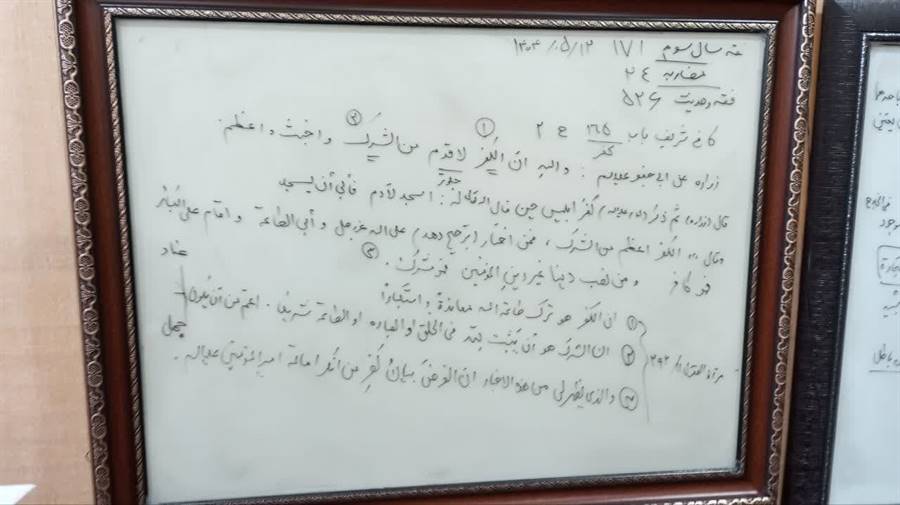 فقه سال سوم ۱۷۱ ۱۴۰۴/۰۵/۱۲
مضاربه ۲۴
فقه و حدیث ۵۲۶
کافی شریف باب ۱۶۵ ح ۲
کفر
زراره عن ابی جعفر علیه‌السلام: والله ان الکفر لاقدم من الشرک و اخبث و اعظم. ① ②
قال (زراره) ثم ذکر کفر ابلیس حین قال الله له: اسجد لآدم فأبی أن یسجد
و قال ... الکفر اعظم من الشرک، فمن اختار (ترجیح دهد) علی الله عز و جل و أبی الطاعة و اقام علی الکبائر
فهو کافر و من نصب دینا غیر دین المؤمنین فهو مشرک. ③
عناد
① ان الکفر هو ترک طاعة الله معاندة و استکباراً
② ان الشرک هو أن یثبت لله فی الخلق او العباده او الطاعة شریکا. اعم من أن یکون
جهل
③ والذی یظهر لی من هذه الاخبار ان الغرض بیان کفر من انکر امامة امیرالمؤمنین علیه‌السلام.
مرآة العقول